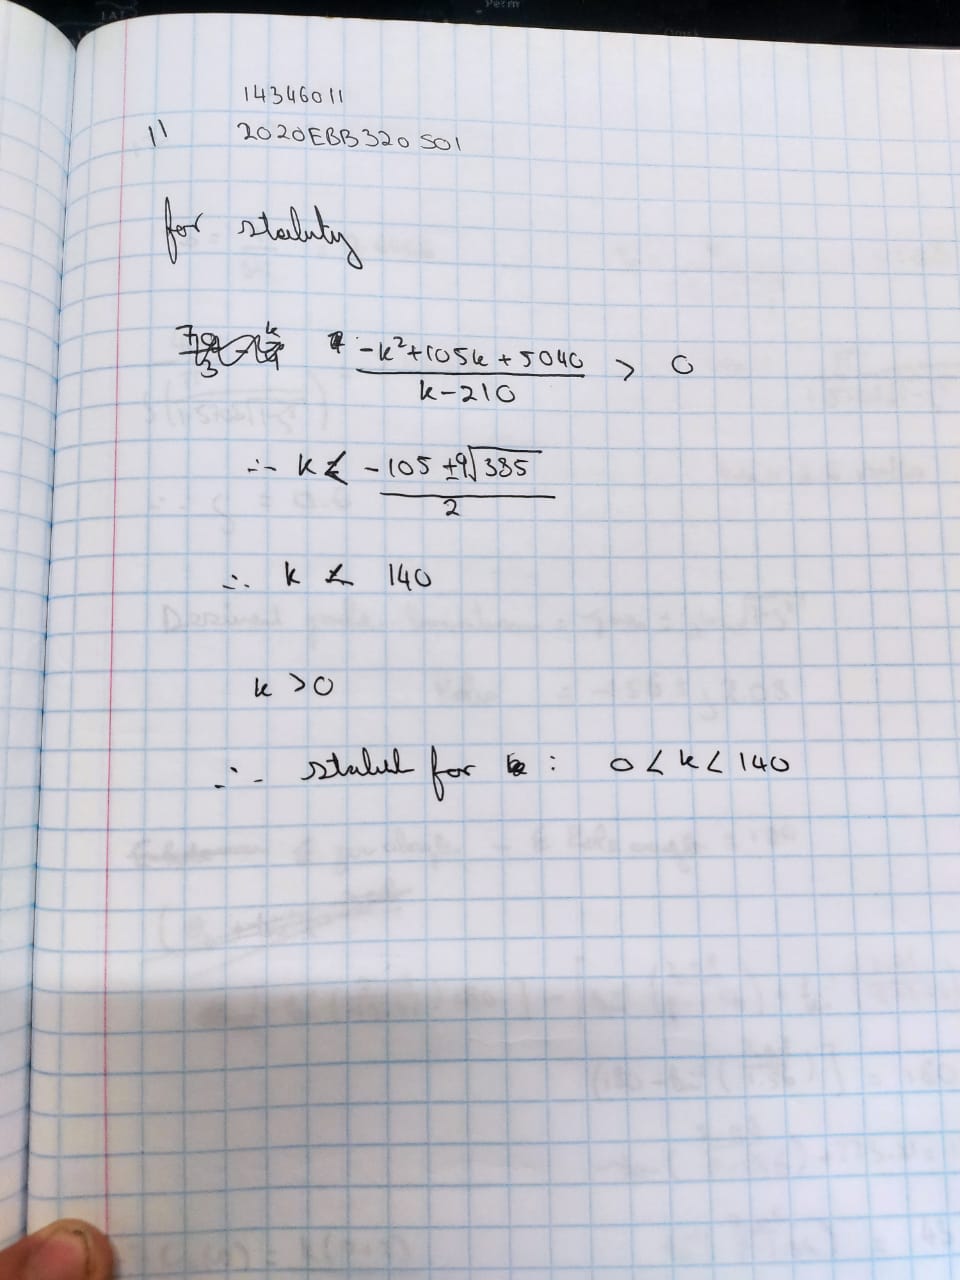 14346011
11 2020EBB320 S01
for stabilty
-k²+105k+5040 / k-210 > 0
∴ k < -105 ±9√385 / 2
∴ k < 140
k >0
∴ stabel for k : 0 < k < 140